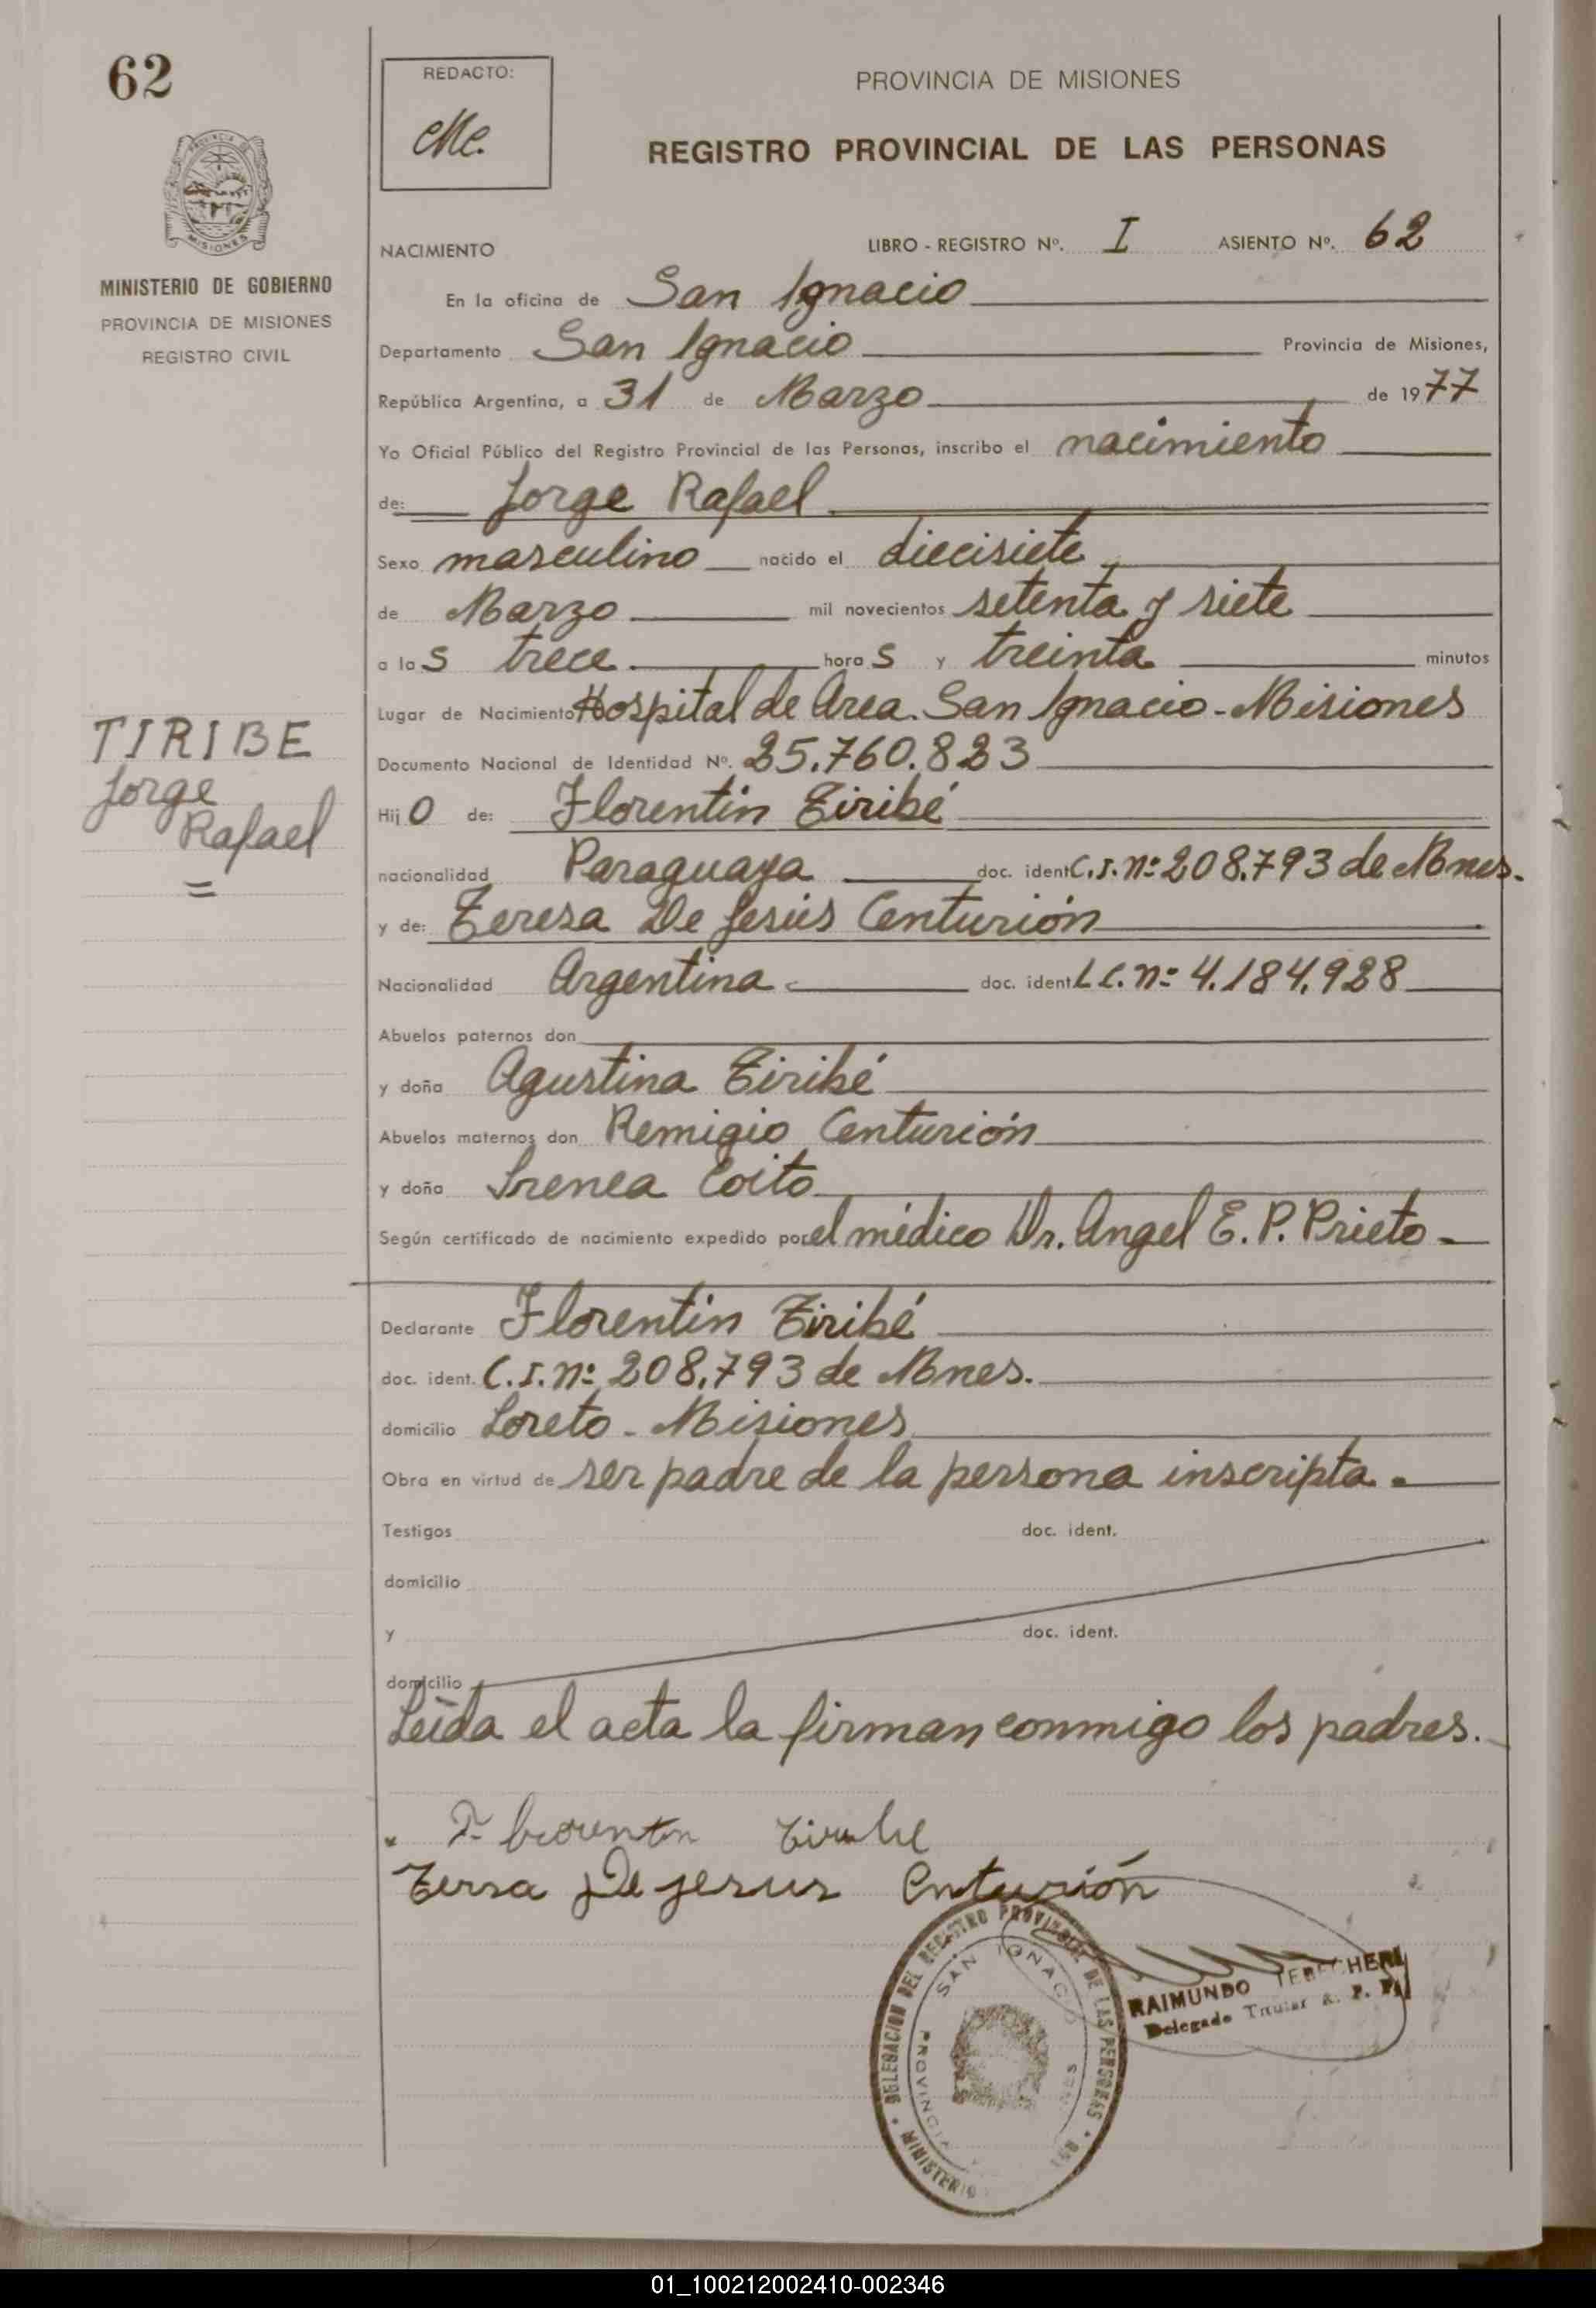 62
REDACTO:
PROVINCIA DE MISIONES
REGISTRO PROVINCIAL DE LAS PERSONAS
MISIONES
MINISTERIO DE GOBIERNO
PROVINCIA DE MISIONES
REGISTRO CIVIL
NACIMIENTO LIBRO - REGISTRO Nº. I ASIENTO Nº. 62
En la oficina de San Ignacio
Departamento San Ignacio Provincia de Misiones,
República Argentina, a 31 de Marzo de 1977
Yo Oficial Público del Registro Provincial de las Personas, inscribo el nacimiento
de: Jorge Rafael
Sexo masculino nacido el diecisiete
de Marzo mil novecientos setenta y siete
a las trece horas y treinta minutos
Lugar de Nacimiento Hospital de Area. San Ignacio - Misiones
TIRIBE
Jorge
Rafael
=
Documento Nacional de Identidad Nº. 25.760.823
Hijo de: Florentín Tiribé
nacionalidad Paraguaya doc. ident. C.I. nº 208.793 de Mnes.
y de: Teresa De Jesús Centurión
Nacionalidad Argentina doc. ident. L.C. nº 4.184.928
Abuelos paternos don
y doña Agustina Tiribé
Abuelos maternos don Remigio Centurión
y doña Irenea Coito
Según certificado de nacimiento expedido por el médico Dr. Angel E. P. Prieto -
Declarante Florentín Tiribé
doc. ident. C.I. nº 208.793 de Mnes.
domicilio Loreto - Misiones
Obra en virtud de ser padre de la persona inscripta.
Testigos doc. ident.
domicilio
y doc. ident.
domicilio
Leída el acta la firman conmigo los padres.
Tersa De jesus Enturión
DELEGACION DEL REGISTRO PROVINCIAL DE LAS PERSONAS
SAN IGNACIO
PROVINCIA
MINISTERIO
RAIMUNDO
Delegado Titular R. P. P.
01_100212002410-002346